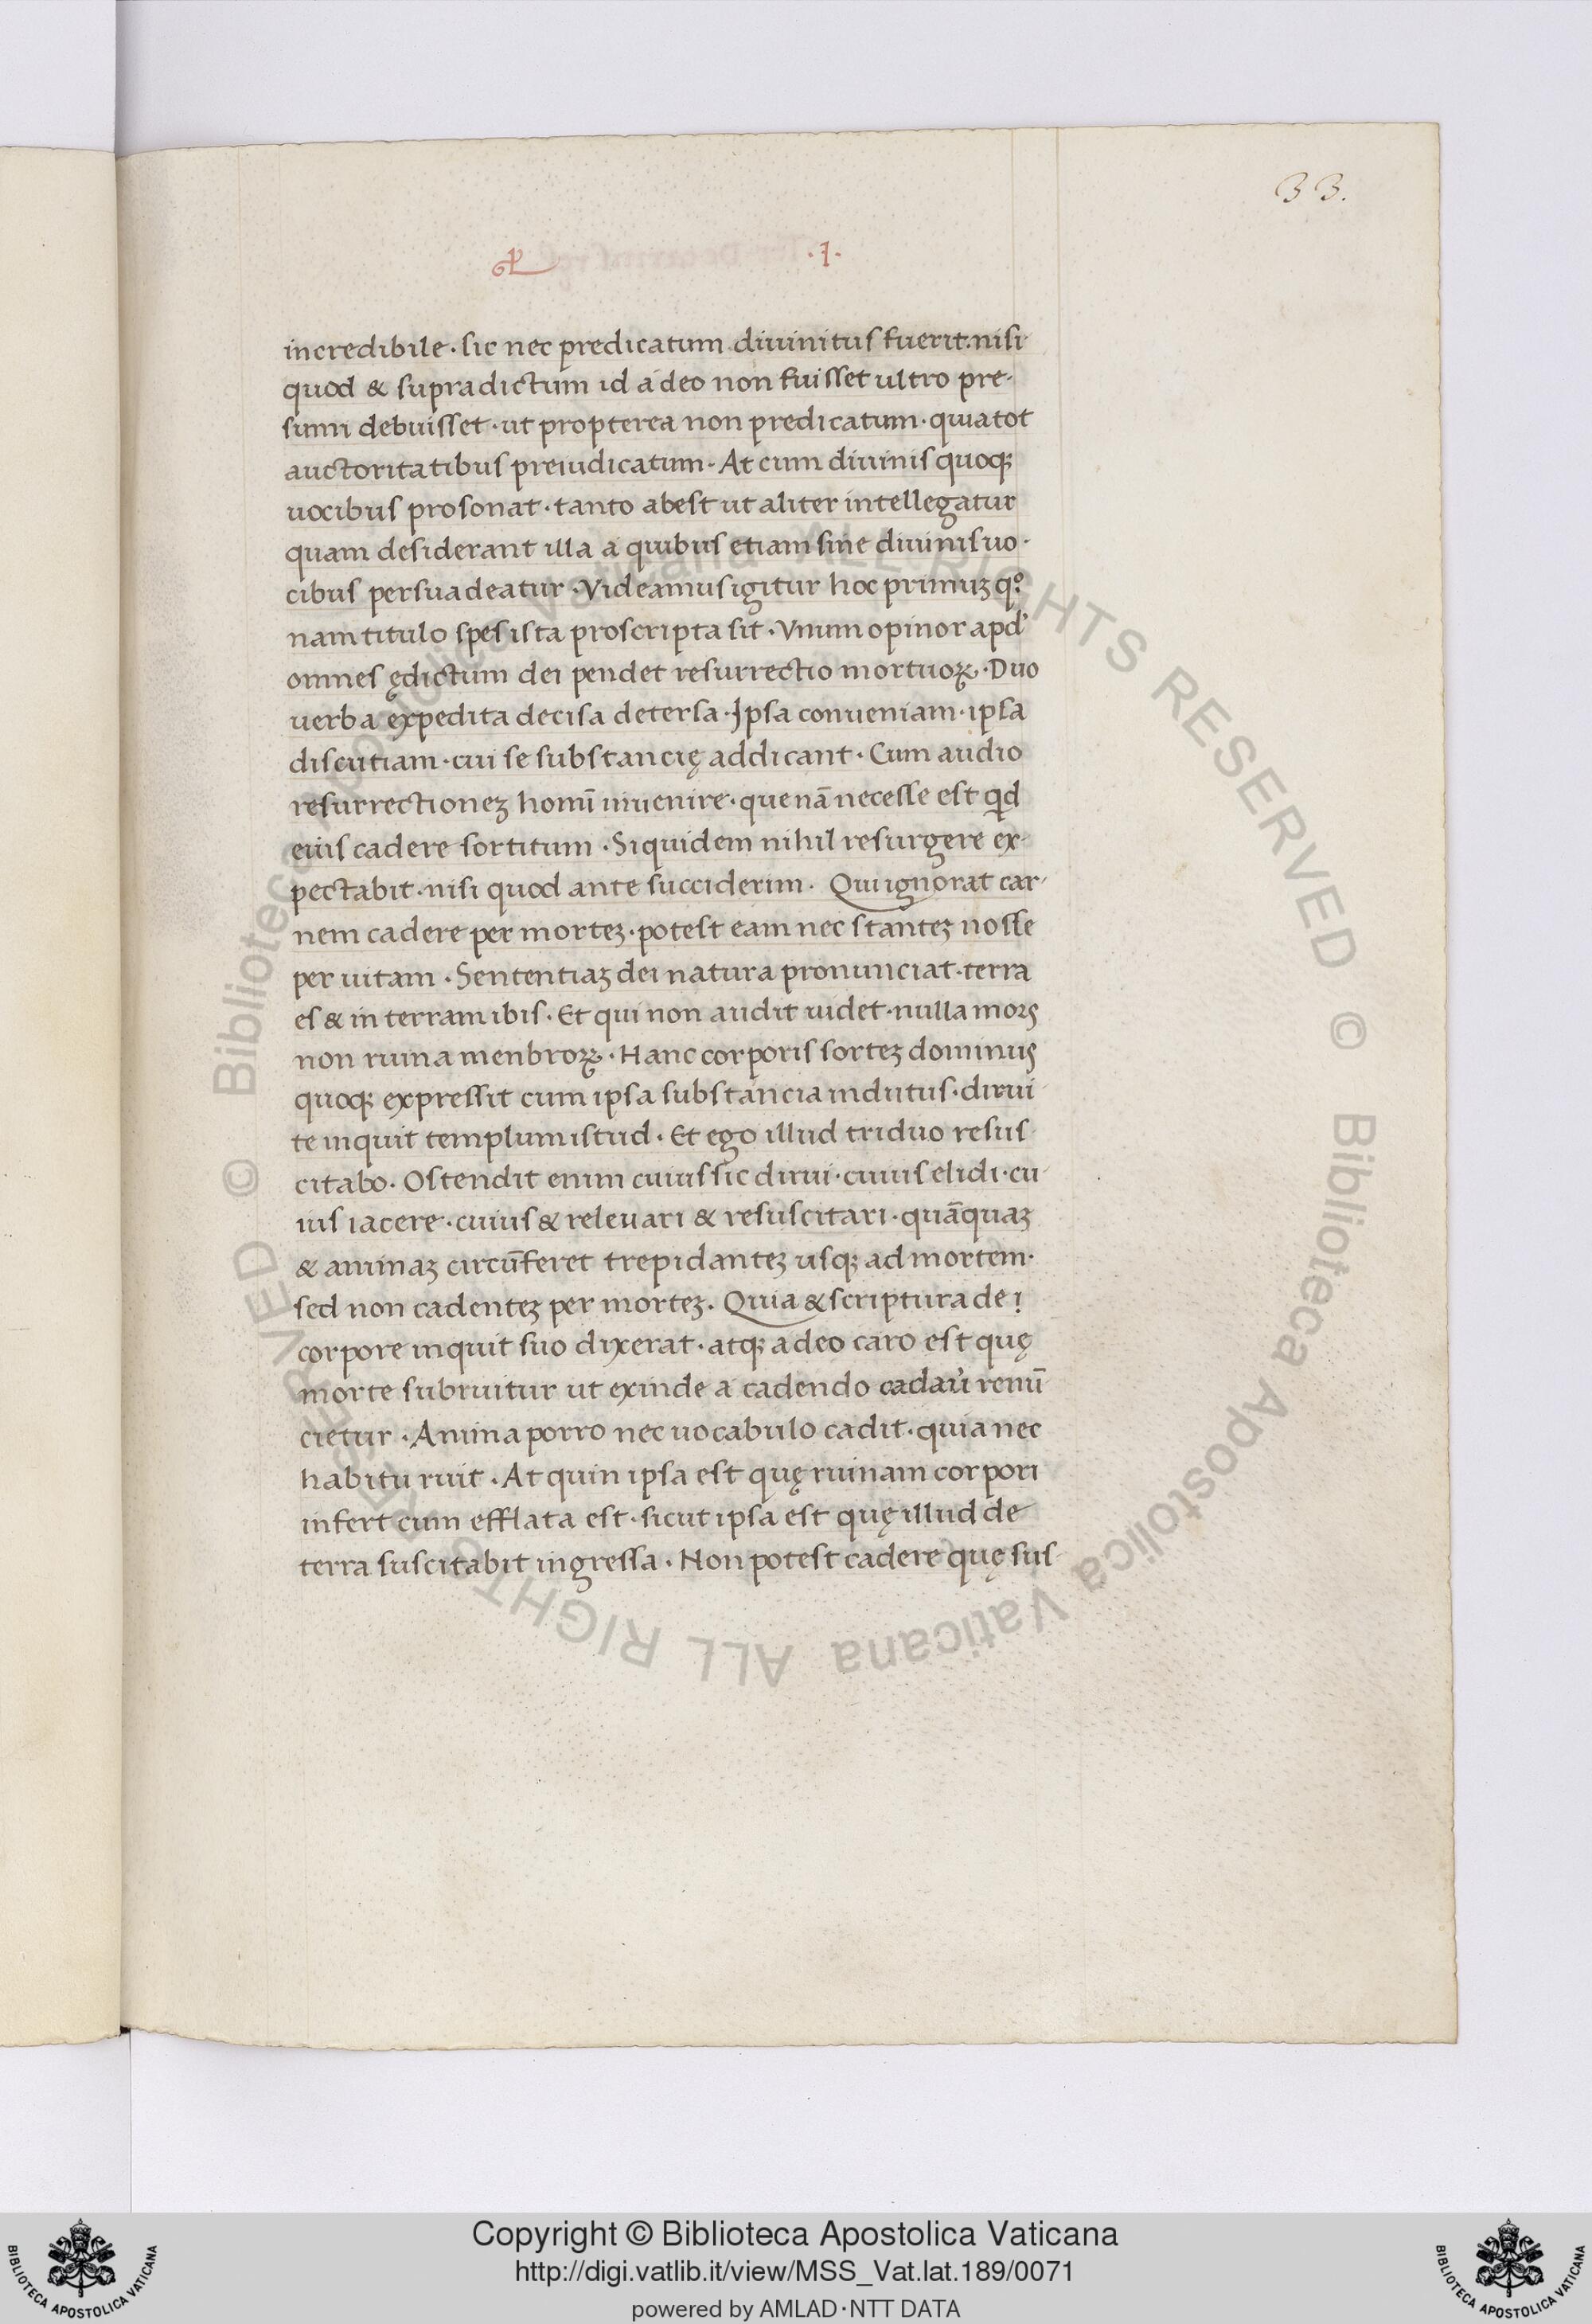 33.
.1.
incredibile · sic nec predicatum diuinitus fuerit. nisi
quod & supradictum id a deo non fuisset ultro pre-
sumi debuisset · ut propterea non predicatum · quia tot
auctoritatibus preiudicatum · At cum diuinis quoqꝫ
uocibus prosonat · tanto abest ut aliter intellegatur
quam desiderant illa a quibus etiam sine diuinis uo-
cibus persuadeatur · Videamus igitur hoc primuꝫ qͦ
nam titulo spes ista proscripta sit · Vnum opinor apd'
omnes ędictum dei pendet resurrectio mortuoꝝ · Duo
uerba expedita decisa detersa · Ipsa conueniam · ipsa
discutiam · cui se substancię addicant · Cum audio
resurrectioneꝫ homī inuenire · que nā necesse est qd
eius cadere sortitum · Siquidem nihil resurgere ex-
pectabit · nisi quod ante succiderim · Qui ignorat car-
nem cadere per morteꝫ · potest eam nec stanteꝫ nosse
per uitam · Sententiaꝫ dei natura pronunciat · terra
es & in terram ibis · Et qui non audit uidet · nulla mors
non ruina menbroꝝ · Hanc corporis sorteꝫ dominus
quoqꝫ expressit cum ipsa substancia indutus · dirui
te inquit templum istud · Et ego illud triduo resus
citabo · Ostendit enim cuius sic dirui · cuius elidi · cu
ius iacere · cuius & releuari & resuscitari · quāquaꝫ
& animaꝫ circūferet trepidanteꝫ usqꝫ ad mortem ·
sed non cadenteꝫ per morteꝫ. Quia & scriptura de!
corpore inquit suo dixerat · atqꝫ adeo caro est quę
morte subruitur ut exinde a cadendo cadau̓ renū
cietur · Anima porro nec uocabulo cadit · quia nec
habitu ruit · At quin ipsa est quę ruinam corpori
infert cum efflata est · sicut ipsa est quę illud de
terra suscitabit ingressa · Non potest cadere quę sus-
© Biblioteca Apostolica Vaticana ALL RIGHTS RESERVED © Biblioteca Apostolica Vaticana ALL RIGHTS RESERVED
Copyright © Biblioteca Apostolica Vaticana
http://digi.vatlib.it/view/MSS_Vat.lat.189/0071
powered by AMLAD·NTT DATA
BIBLIOTECA APOSTOLICA VATICANA
BIBLIOTECA APOSTOLICA VATICANA